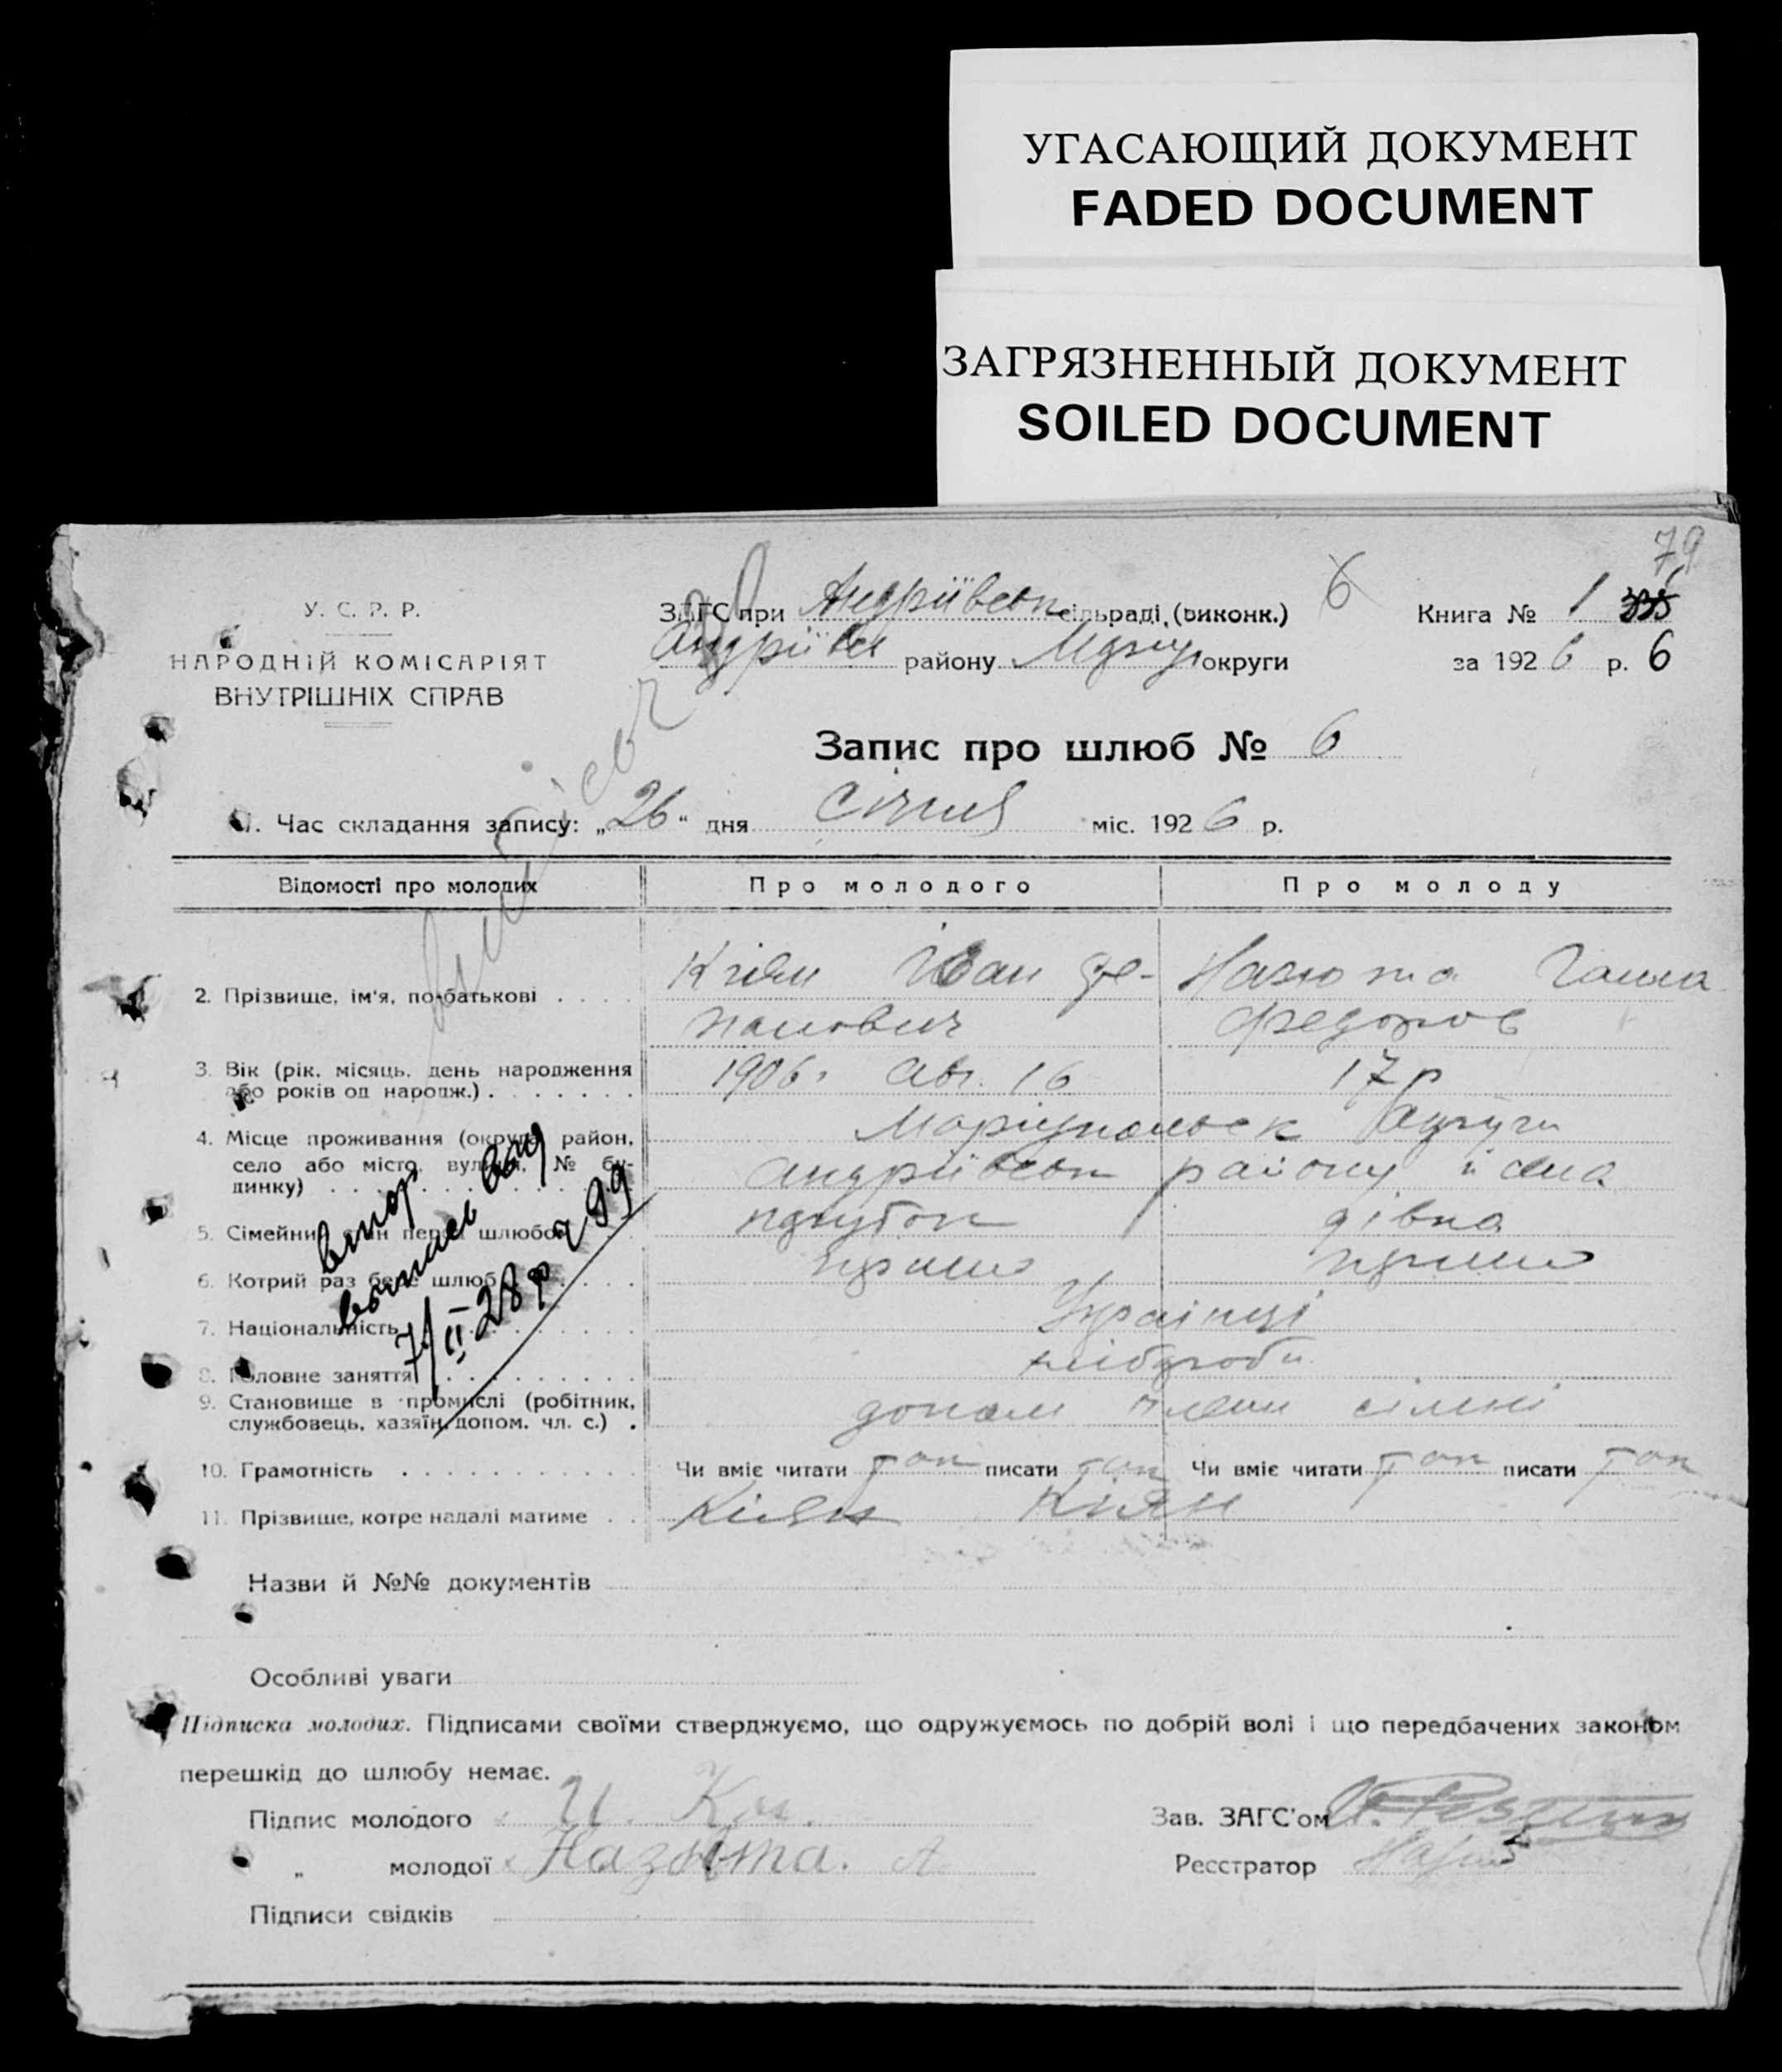 УГАСАЮЩИЙ ДОКУМЕНТ
FADED DOCUMENT
ЗАГРЯЗНЕННЫЙ ДОКУМЕНТ
SOILED DOCUMENT
79
У. С. Р. Р.
НАРОДНІЙ КОМІСАРІЯТ
ВНУТРІШНІХ СПРАВ
ЗАГС при Андріївськ сільраді, (виконк.) 6
Андріївськ району округи
Книга № 1
за 1926 р. 6
Запис про шлюб № 6
1. Час складання запису: „26“ дня Січня міс. 1926 р.
Відомості про молодих Про молодого Про молоду
2. Прізвище, ім'я, по-батькові . . . . Кіян Іван Назюта Ганна
Федоров
3. Вік (рік, місяць, день народження 1906 Авг. 16 17 р
або років од народж.) . . . . . . .
4. Місце проживання (округа, район, Маріупольск Округи
село або місто, вулиця, № бу- Андріївськ району й села
динку) . . . . . . . . . . . .
5. Сімейний стан перед шлюбом парубок дівка
6. Котрий раз бере шлюб . . . . перше перше
7. Національність . . . . . . . . Українці
8. Головне заняття . . . . . . . . . хлібороби
9. Становище в промислі (робітник, допом члени сімні
службовець, хазяїн, допом. чл. с.) .
10. Грамотність . . . . . . . . . . . Чи вміє читати так писати так Чи вміє читати так писати так
11. Прізвище, котре надалі матиме . . Кіян Киян
7/II 28 р 99
Назви й №№ документів
Особливі уваги
Підписка молодих. Підписами своїми стверджуємо, що одружуємось по добрій волі і що передбачених законом
перешкід до шлюбу немає.
Підпис молодого И. Зав. ЗАГС'ом
„ молодої Назюта. А Реєстратор
Підписи свідків